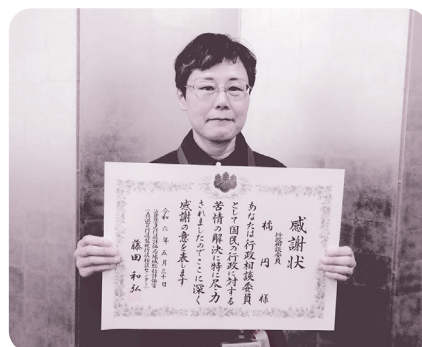 感謝状
行政相談委員
橘 円 様
あなたは行政相談委員
として国民の行政に対する
苦情の解決に特に尽力
されましたのでここに深く
感謝の意を表します
令和六年五月三十日
藤田 和弘